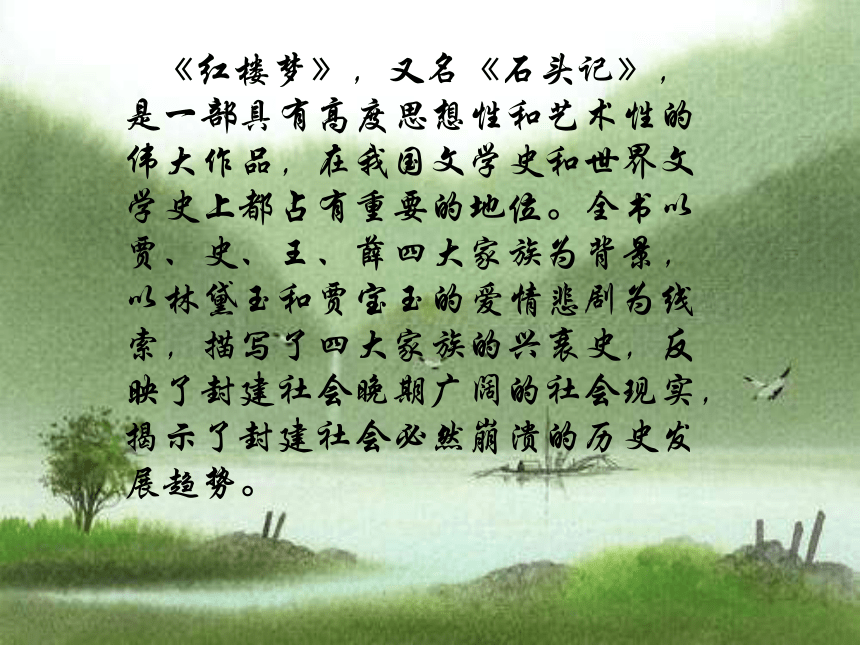 《红楼梦》，又名《石头记》，
是一部具有高度思想性和艺术性的
伟大作品，在我国文学史和世界文
学史上都占有重要的地位。全书以
贾、史、王、薛四大家族为背景，
以林黛玉和贾宝玉的爱情悲剧为线
索，描写了四大家族的兴衰史，反
映了封建社会晚期广阔的社会现实，
揭示了封建社会必然崩溃的历史发
展趋势。